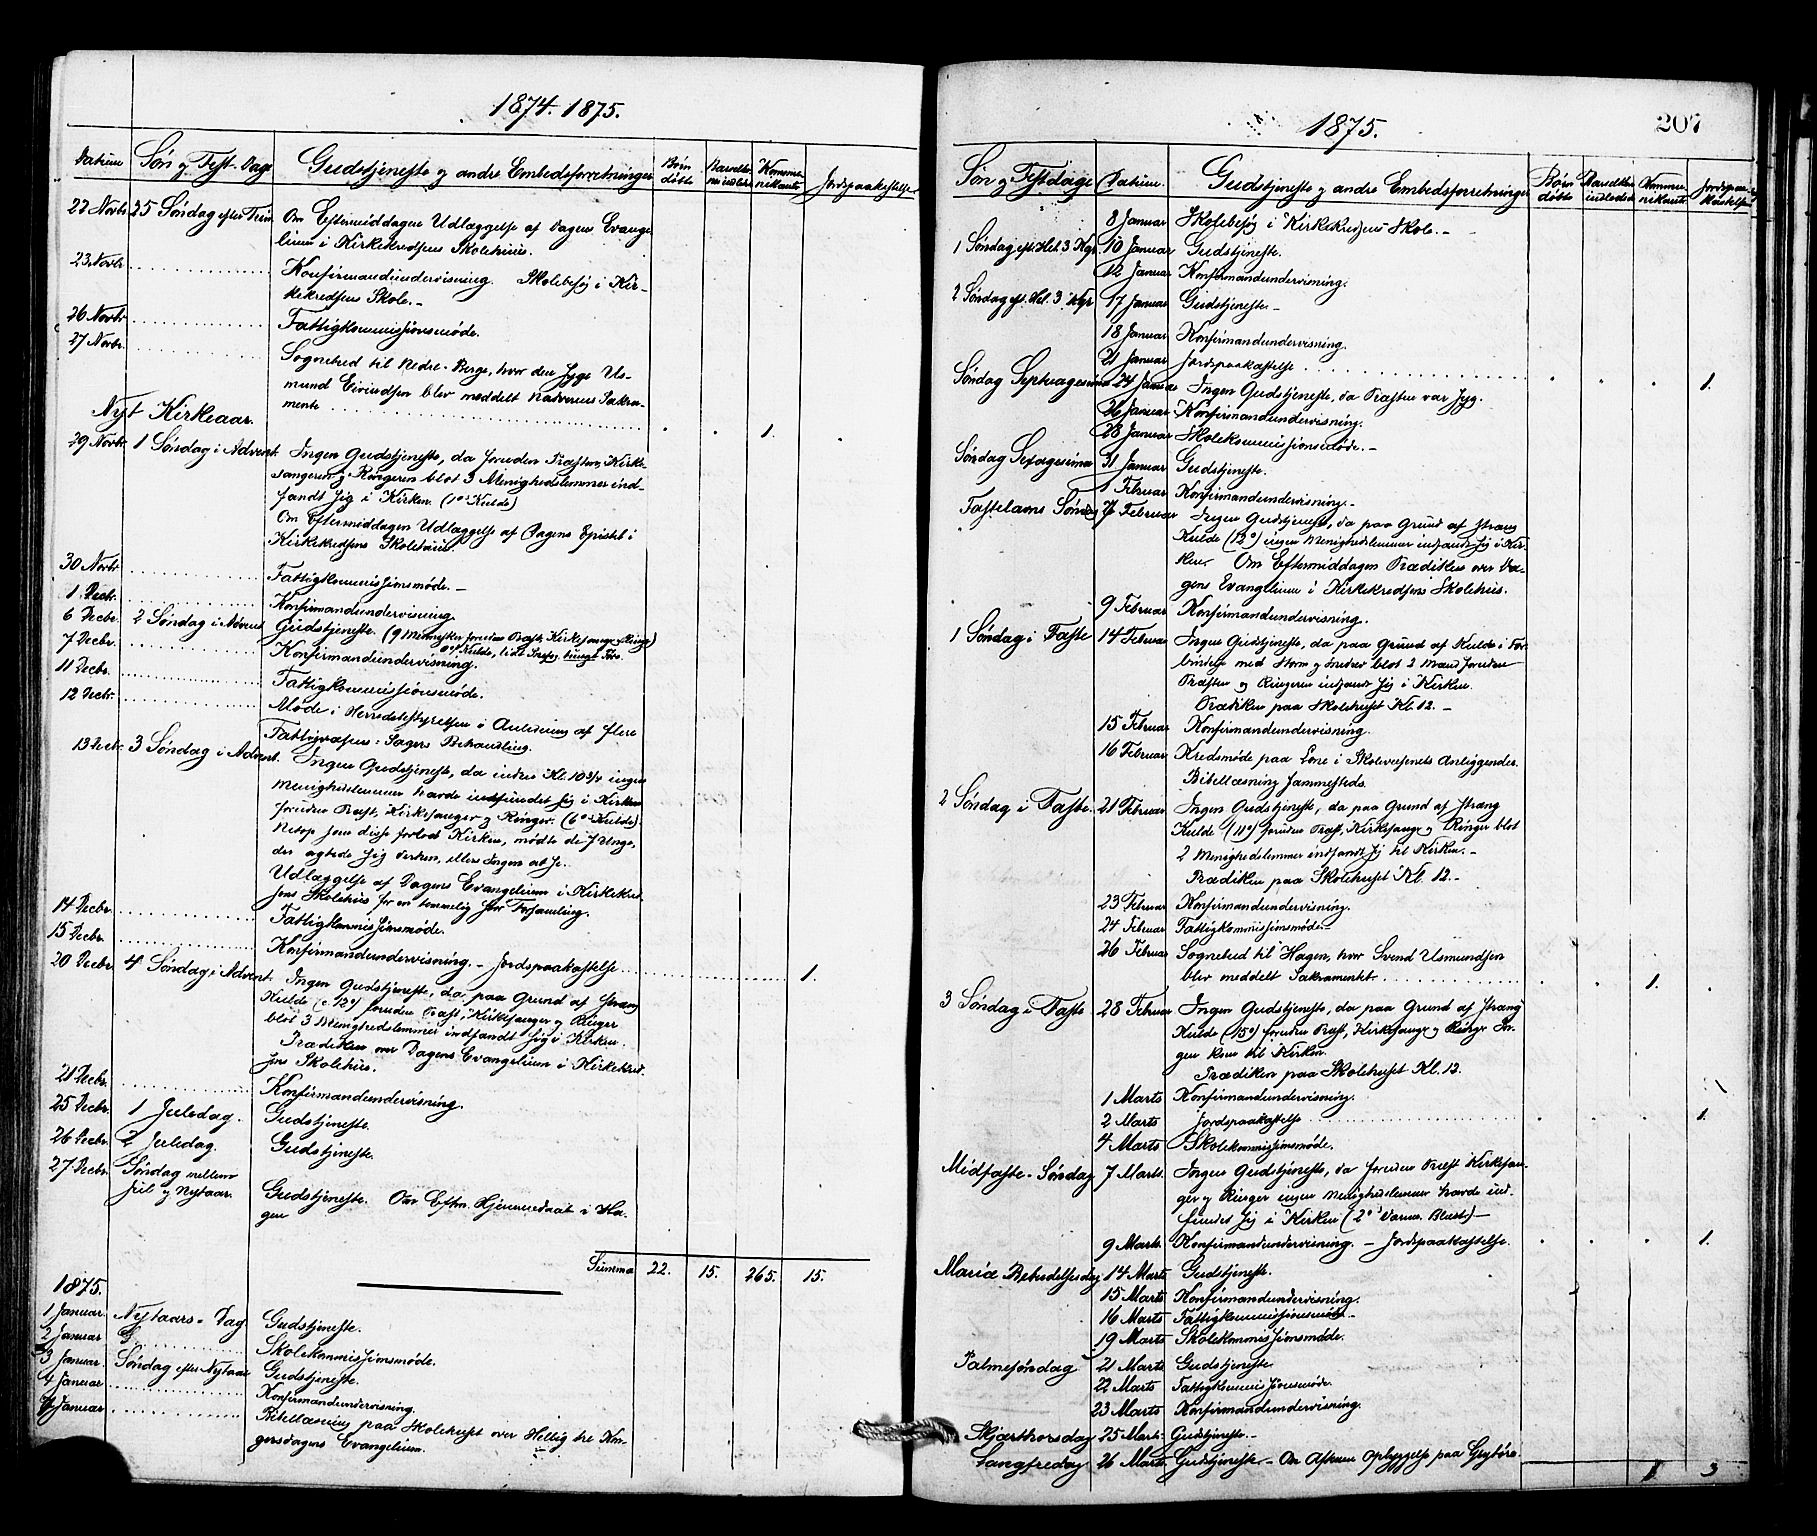 1874. 1875.
Datum Søn og Fest-Dage Gudstjeneste og andre Embedsforretninger Børn døbte Barselkv. indledte Kommunikanter Jordspaakastelse
22 Novbr. 25 Søndag efter Trin. Om Eftermiddagen Udlæggelse af Dagens Evange-
lium i Kirkekredsens Skolehuus.
23 Novbr. Konfirmandundervisning. Skolebesøg i Kir-
kekredsens Skole.-
26 Novbr. Fattigkommissionsmøde.
27 Novbr. Sognebud til Nedre-Berge, hvor den syge Us-
mund Eivindsen blev meddelt Nadverens Sakra-
mente 1.
Nyt Kirkeaar.
29 Novbr. 1 Søndag i Advent. Ingen Gudstjeneste, da foruden Præsten, Kirke-
sangeren og Ringeren blot 3 Menighedslemmer ind-
fandt sig i Kirken. (10° Kulde)
Om Eftermiddagen Udlæggelse af Dagens Epistel i
Kirkekredsens Skolehuus.
30 Novbr. Fattigkommissionsmøde.-
1. Decbr. Konfirmandundervisning.
6 Decbr. 2 Søndag i Advent Gudstjeneste. (9 Mennesker foruden Præst, Kirkesanger og Ringer)
7 Decbr. Konfirmandundervisning.
11 Decbr. Fattigkommissionsmøde.
12 Decbr. Møde i Herredsbestyrelsen i Anledning af flere
Fattigvæsens-Sagers Behandling.
13 Decbr. 3 Søndag i Advent. Ingen Gudstjeneste, da inden Kl. 10 3/4 ingen
Menighedslemmer havde indfundet sig i Kirken
foruden Præst, Kirkesanger og Ringer. (6° Kulde)
Netop som disse forlod Kirken, mødte de 7 Unge,
der agtede sig derhen, ellers Ingen at se.
Udlæggelse af Dagens Evangelium i Kirkekred-
sens Skolehuus for en temmelig stor Forsamling.
14 Decbr. Fattigkommissionsmøde.
15 Decbr. Konfirmandundervisning. - Jordspaakastelse 1.
20 Decbr. 4 Søndag i Advent. Ingen Gudstjeneste, da paa Grund af stræng
Kulde (c. 12°) foruden Præst, Kirkesanger og Ringer
blot 3 Menighedslemmer indfandt sig i Kirken.
Prædiken over Dagens Evangelium i Kirkekred-
sens Skolehuus.
21 Decbr. Konfirmandundervisning.
25 Decbr. 1 Juledag. Gudstjeneste.
26 Decbr. 2 Juledag. Gudstjeneste.
27 Decbr. Søndag mellem
Jul og Nytaar. Gudstjeneste. Om Eftm. Hjemmedaab i Ha-
gen
Summa 22. 15. 265. 15.
1875.
1 Januar. Nytaars-Dag Gudstjeneste.
2 Januar Skolekommissionsmøde.
3 Januar. Søndag efter Nytaar Gudstjeneste.
4 Januar Konfirmandundervisning.
Januar Bibellæsning paa Skolehuset over Hellig tre Kon-
gersdagens Evangelium.
1875. 207
Søn og Festdage Datum. Gudstjeneste og andre Embedsforretninger Børn døbte Barselkv. indledte Kommunikanter Jordspaakastelse
8 Januar Skolebesøg i Kirkekredsens Skole.-
1 Søndag eft. Hel. 3 Kgr. 10 Januar Gudstjeneste.
12 Januar Konfirmandundervisning.
2 Søndag eft. Hel. 3 Kgr. 17 Januar Gudstjeneste.-
18 Januar Konfirmandundervisning.
21 Januar Jordspaakastelse 1.
Søndag Septuagesima 24 Januar Ingen Gudstjeneste, da Præsten var syg.
26 Januar Konfirmandundervisning.
28 Januar Skolekommissionsmøde.-
Søndag Sexagesima 31 Januar Gudstjeneste.
1 Februar Konfirmandundervisning.-
Fastelavns Søndag 7 Februar Ingen Gudstjeneste, da paa Grund af stræng
Kulde (12°) ingen Menighedslemmer indfandt sig i Kir-
ken. Om Eftermiddagen Prædiken over Da-
gens Evangelium i Kirkekredsens Skolehus.
9 Februar Konfirmandundervisning.
1 Søndag i Faste 14 Februar Ingen Gudstjeneste, da paa Grund af Kulde i For-
bindelse med Storm og Snedrev blot 2 Mand foruden
Præsten og Ringeren indfandt sig i Kirken.
Prædiken paa Skolehuset Kl. 12.-
15 Februar Konfirmandundervisning.
16 Februar Kredsmøde paa Lone i Skolevæsenets Anliggender.
Bibellæsning sammesteds.
2 Søndag i Faste. 21 Februar Ingen Gudstjeneste, da paa Grund af stræng
Kulde (11°) foruden Præst, Kirkesanger og Ringer blot
2 Menighedslemmer indfandt sig til Kirken.-
Prædiken paa Skolehuset Kl. 12.-
23 Februar Konfirmandundervisning.
24 Februar Fattigkommissionsmøde.-
26 Februar Sognebud til Hagen, hvor Svend Usmundsen
blev meddelt Sakramentet 1.
3 Søndag i Faste 28 Februar Ingen Gudstjeneste, da paa Grund af stræng
Kulde (15°) foruden Præst, Kirkesanger og Ringer In-
gen kom til Kirken.
Prædiken paa Skolehuset Kl. 12.
1 Marts Konfirmandundervisning.
2 Marts Jordspaakastelse 1.
4 Marts Skolekommissionsmøde.
Midfaste-Søndag 7 Marts. Ingen Gudstjeneste, da foruden Præst Kirkesan-
ger og Ringer ingen Menighedslemmer havde ind-
fundet sig i Kirken (2° Varme. Blæst)-
9 Marts. Konfirmandundervisning. - Jordspaakastelse. 1.
Mariæ Bebudelsesdag 14 Marts Gudstjeneste.
15 Marts Konfirmandundervisning.
16 Marts Fattigkommissionsmøde.-
19 Marts Skolekommissionsmøde.
Palmesøndag 21 Marts Gudstjeneste
22 Marts Fattigkommissionsmøde.
23 Marts Konfirmandundervisning.
Skjærthorsdag 25 Marts. Gudstjeneste.-
Langfredag 26 Marts. Gudstjeneste.- Om Aftenen Opbyggelse paa
1 3